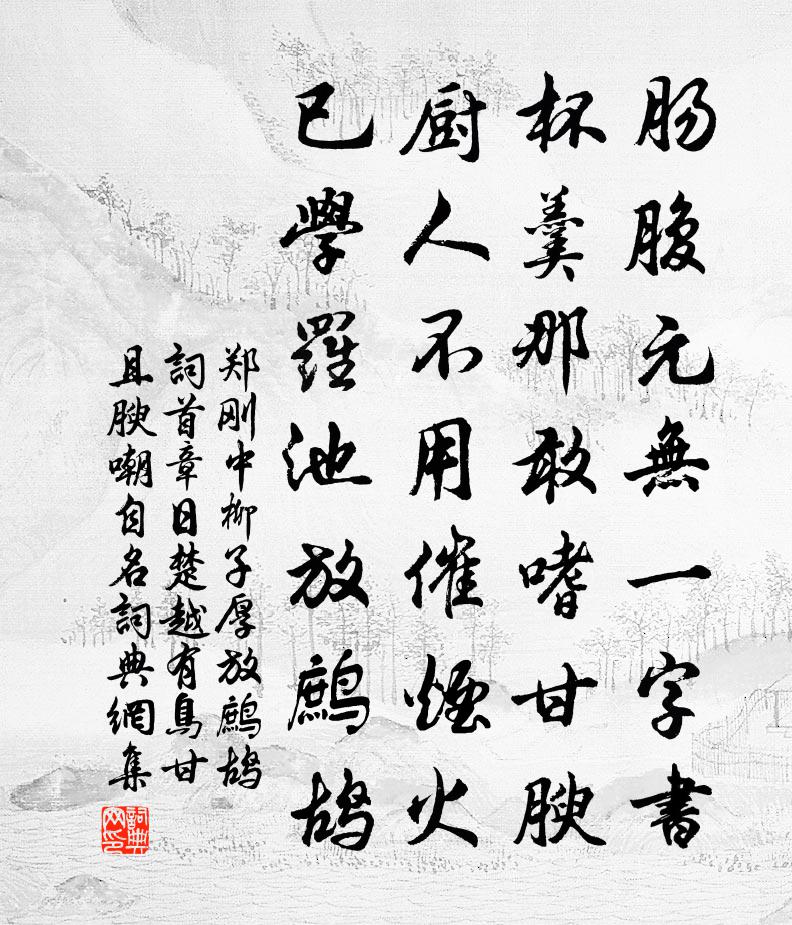 肠腹元無一字書
杯羹那敢嗜甘腴
厨人不用催煙火
已學羅池放鷓鴣
郑刚中柳子厚放鷓鴣
詞首章日楚越有鳥甘
且腴嘲自名詞典網集
詞典
网印